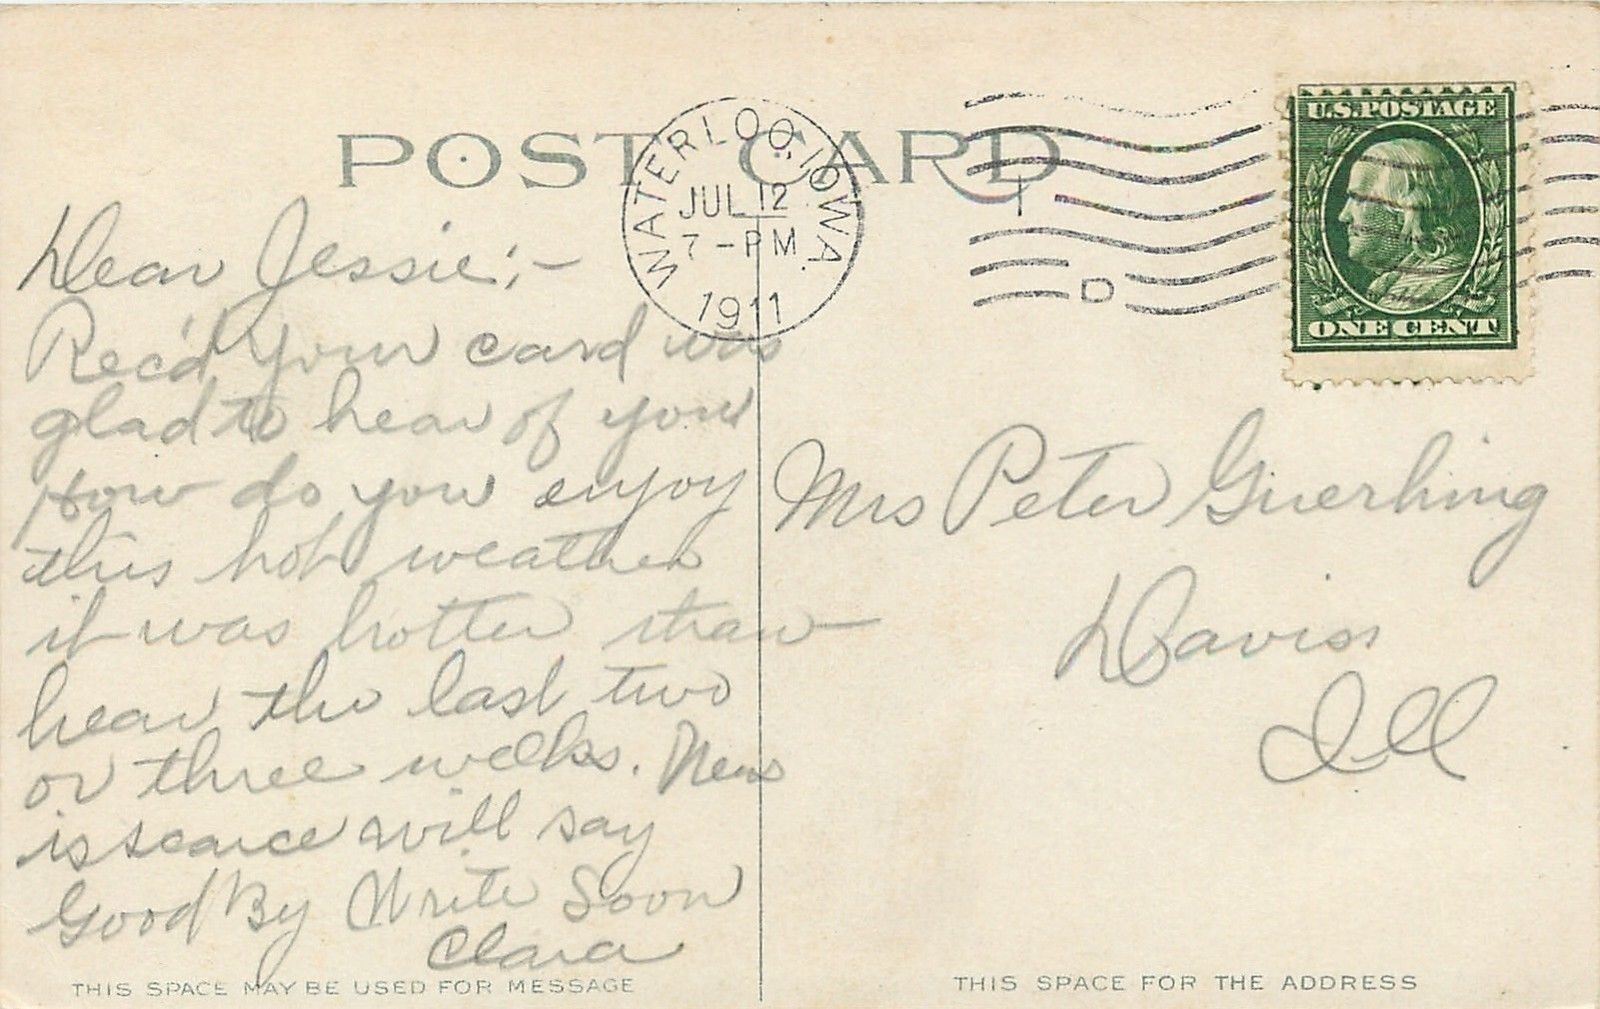 POST CARD
WATERLOO, IOWA.
JUL 12
7-PM
1911
D
U.S. POSTAGE
ONE CENT
Dear Jessie;-
Rec'd your card was
glad to hear of you
How do you enjoy
this hot weather
it was hotter than
hear the last two
or three weeks. News
is scarce will say
Good By Write Soon
Clara
THIS SPACE MAY BE USED FOR MESSAGE
Mrs Peter Guerhing
Davis
Ill
THIS SPACE FOR THE ADDRESS